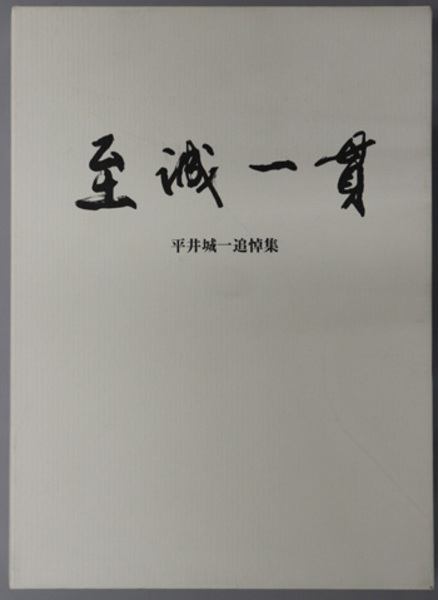 至誠一貫
平井城一追悼集